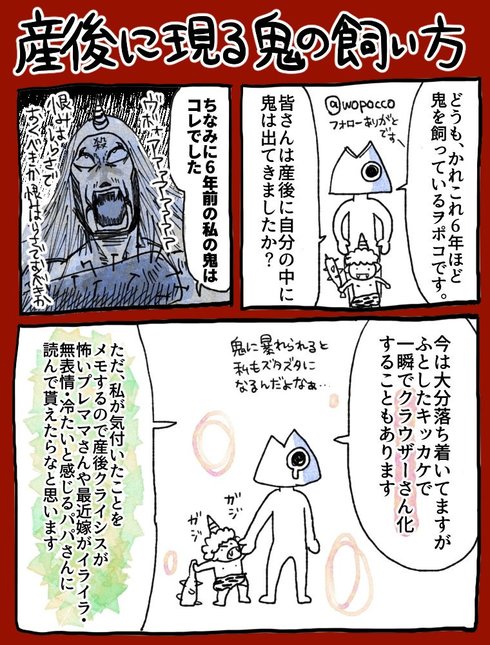 産後に現る鬼の飼い方
どうも、かれこれ6年ほど
鬼を飼っているヲポコです。
@wopocco
フォローありがとう
です
皆さんは産後に自分の中に
鬼は出てきましたか？
ちなみに6年前の私の鬼は
コレでした
殺
ヴォォアアアアアアアア
恨みはらさで
おくべきか
今は大分落ち着いてますが
ふとしたキッカケで
一瞬でクラウザーさん化
することもあります
鬼に暴れられると
私もズタズタに
なるんだよなぁ…
ガジ
ガジ
ただ、私が気付いたことを
メモするので産後クライシスが
怖いプレママさんや最近嫁がイライラ・
無表情・冷たいと感じるパパさんに
読んで貰えたらなと思います